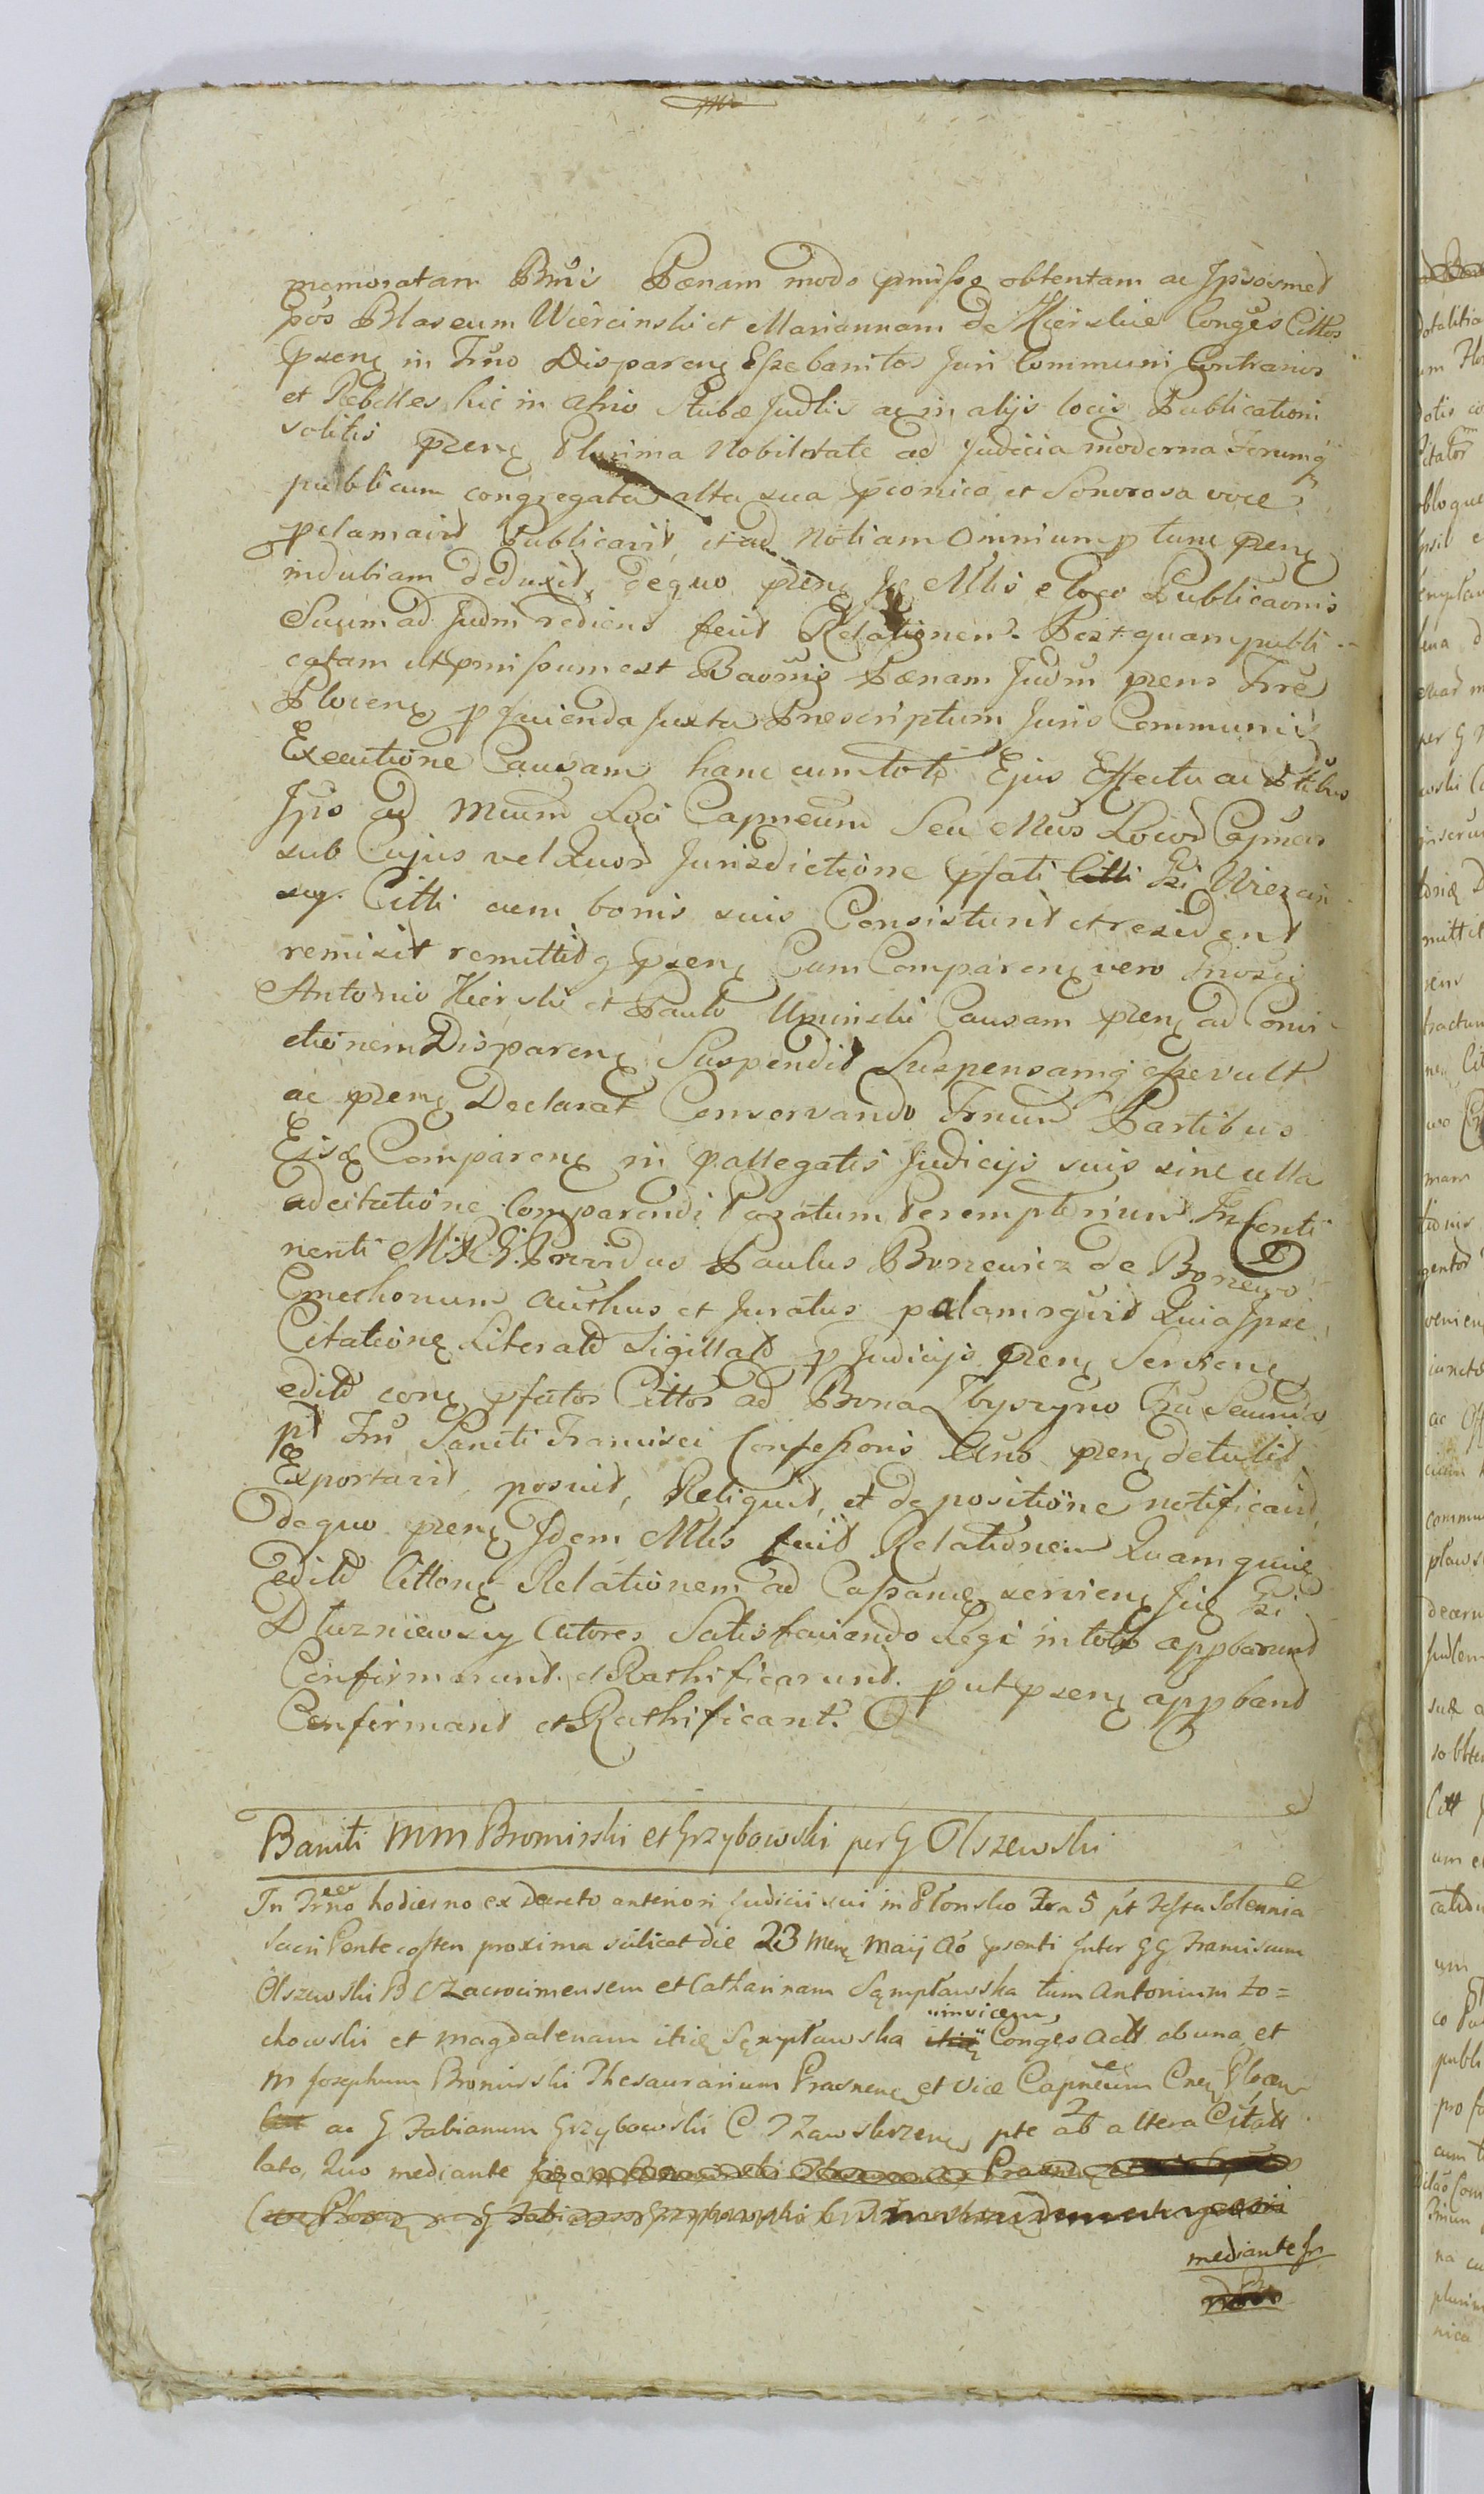 memoratam Bnis Pœnam modo pmisso obtentam ac Ipsosmed
pos Blaseum Wiercinski et Mariannam de Kierskie Conges Cittos
psene in Trno Disparene Esse banitos Juri Communi Contrarios
et Rebelles hic in atrio Stubæ Judlis ac in alijs locis Publicationi
solitis psene Plurima Nobilitate ad Judicia moderna Forumq
publicum congregata alta sua pconica et Sonorosa voce
pclamavit Publicavit, et ad Notiam Omnium p tunc psene
indubiam deduxit, de quo psene Jdē Mlis e loco Publicaonis
Suum ad Judm rediens fecit Relationem. Post quam publi
catam ut pmissum est Baonis Pœnam Judm psens Trre
Plocene p facienda juxta Præscriptum Juris Communis
Executione Causam hanc cum toto Ejus Effectu ac Ptibus
Ipso ad Mcum Loci Capneum Seu Mcos Locor Capneos
sub Cujus vel Quor Jurisdictione pfati Gsi Wiercin
scy. Citti cum bonis suis Consisturit et resident
remisit remittitq psene Cum Comparene vero Gnosis
Antonio Kierski et Paulo Uminski Causam psene ad Convi
ctionem Disparene Suspendit Suspensamq esse vult
ac psene Declarat Conservando Trnum Partibus
Eisd Comparene in pallegatis Judicijs suis sine ulla
adcitatione Comparendi Paratum Peremptorium In Conti
nenti M R G. Providus Paulus Borzewicz de Borzewo
Cmethonum authus et Juratus palam rgvit Quia Ipse
Citatione Literald Sigillatd p Judicijs psene Serviene
editd cone pfatos Cittos ad Bona Zbyszyno Fra Secunda
pt Fm Sancti Francisci Confessoris Ano psene detulit
Exportavit, posuit, Reliquit, et de positione notificavit
de quo psene Jdem Mlis fecit Relationem Quam quidē
editd Cittone Relationem ad Cassane serviene Jid Gsi
Dluzniewscy Actores Satisfaciendo Legi in toto appbarunt
Confirmarunt. et Rathificarunt. put psene appbant
Confirmant et Rathificant.
Baniti MM Bromirski et Grzybowski per G Olszewski
In Trno hodierno ex Decreto anteriori Judicii sui in Płonsko Fra 5 pt Festa Solennia
Sacri Pentecosten proxima scilicet die 23 Mens Maij Ao psenti Inter GG Franciscum
Olszewski B C Zacrocimensem et Catharinam Sąmpławska tum Antonium Zo=
chowski et Magdalenam itid Sęmpławska "invicem" Conges Actt ab una et
M Josephum Bromirski Thesaurarium Prasnene et Vice Capneum Cne Plocen
ac G Fabianum Grzybowski C T Zawskrzene pte ab altera Citatt
lato, Quo mediante
mediante Jn